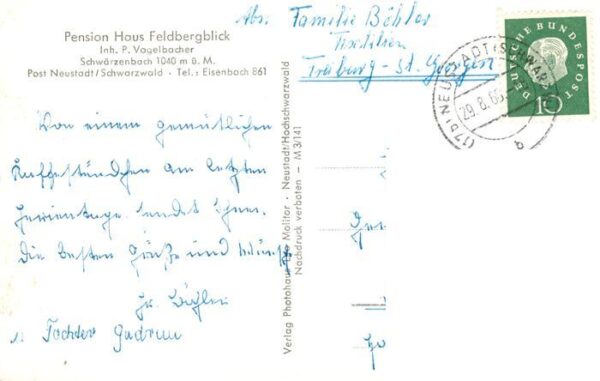 Pension Haus Feldbergblick
Inh. P. Vogelbacher
Schwärzenbach 1040 m ü. M.
Post Neustadt/Schwarzwald - Tel.: Eisenbach 861
Abs: Familie Böhler
Textilien
Freiburg - St. Georgen
(17b) NEUSTADT (SCHWARZW
29.8.60
a
DEUTSCHE BUNDESPOST
10
Von einem gemütlichen
Kaffestündchen am letzten
Ferientage sendet Ihnen
die besten Grüße und Wünsche
Fr. Böhler
u. Tochter Gudrun
Verlag Photohaus Leo Molitor · Neustadt/Hochschwarzwald
Nachdruck verboten - M 3/141